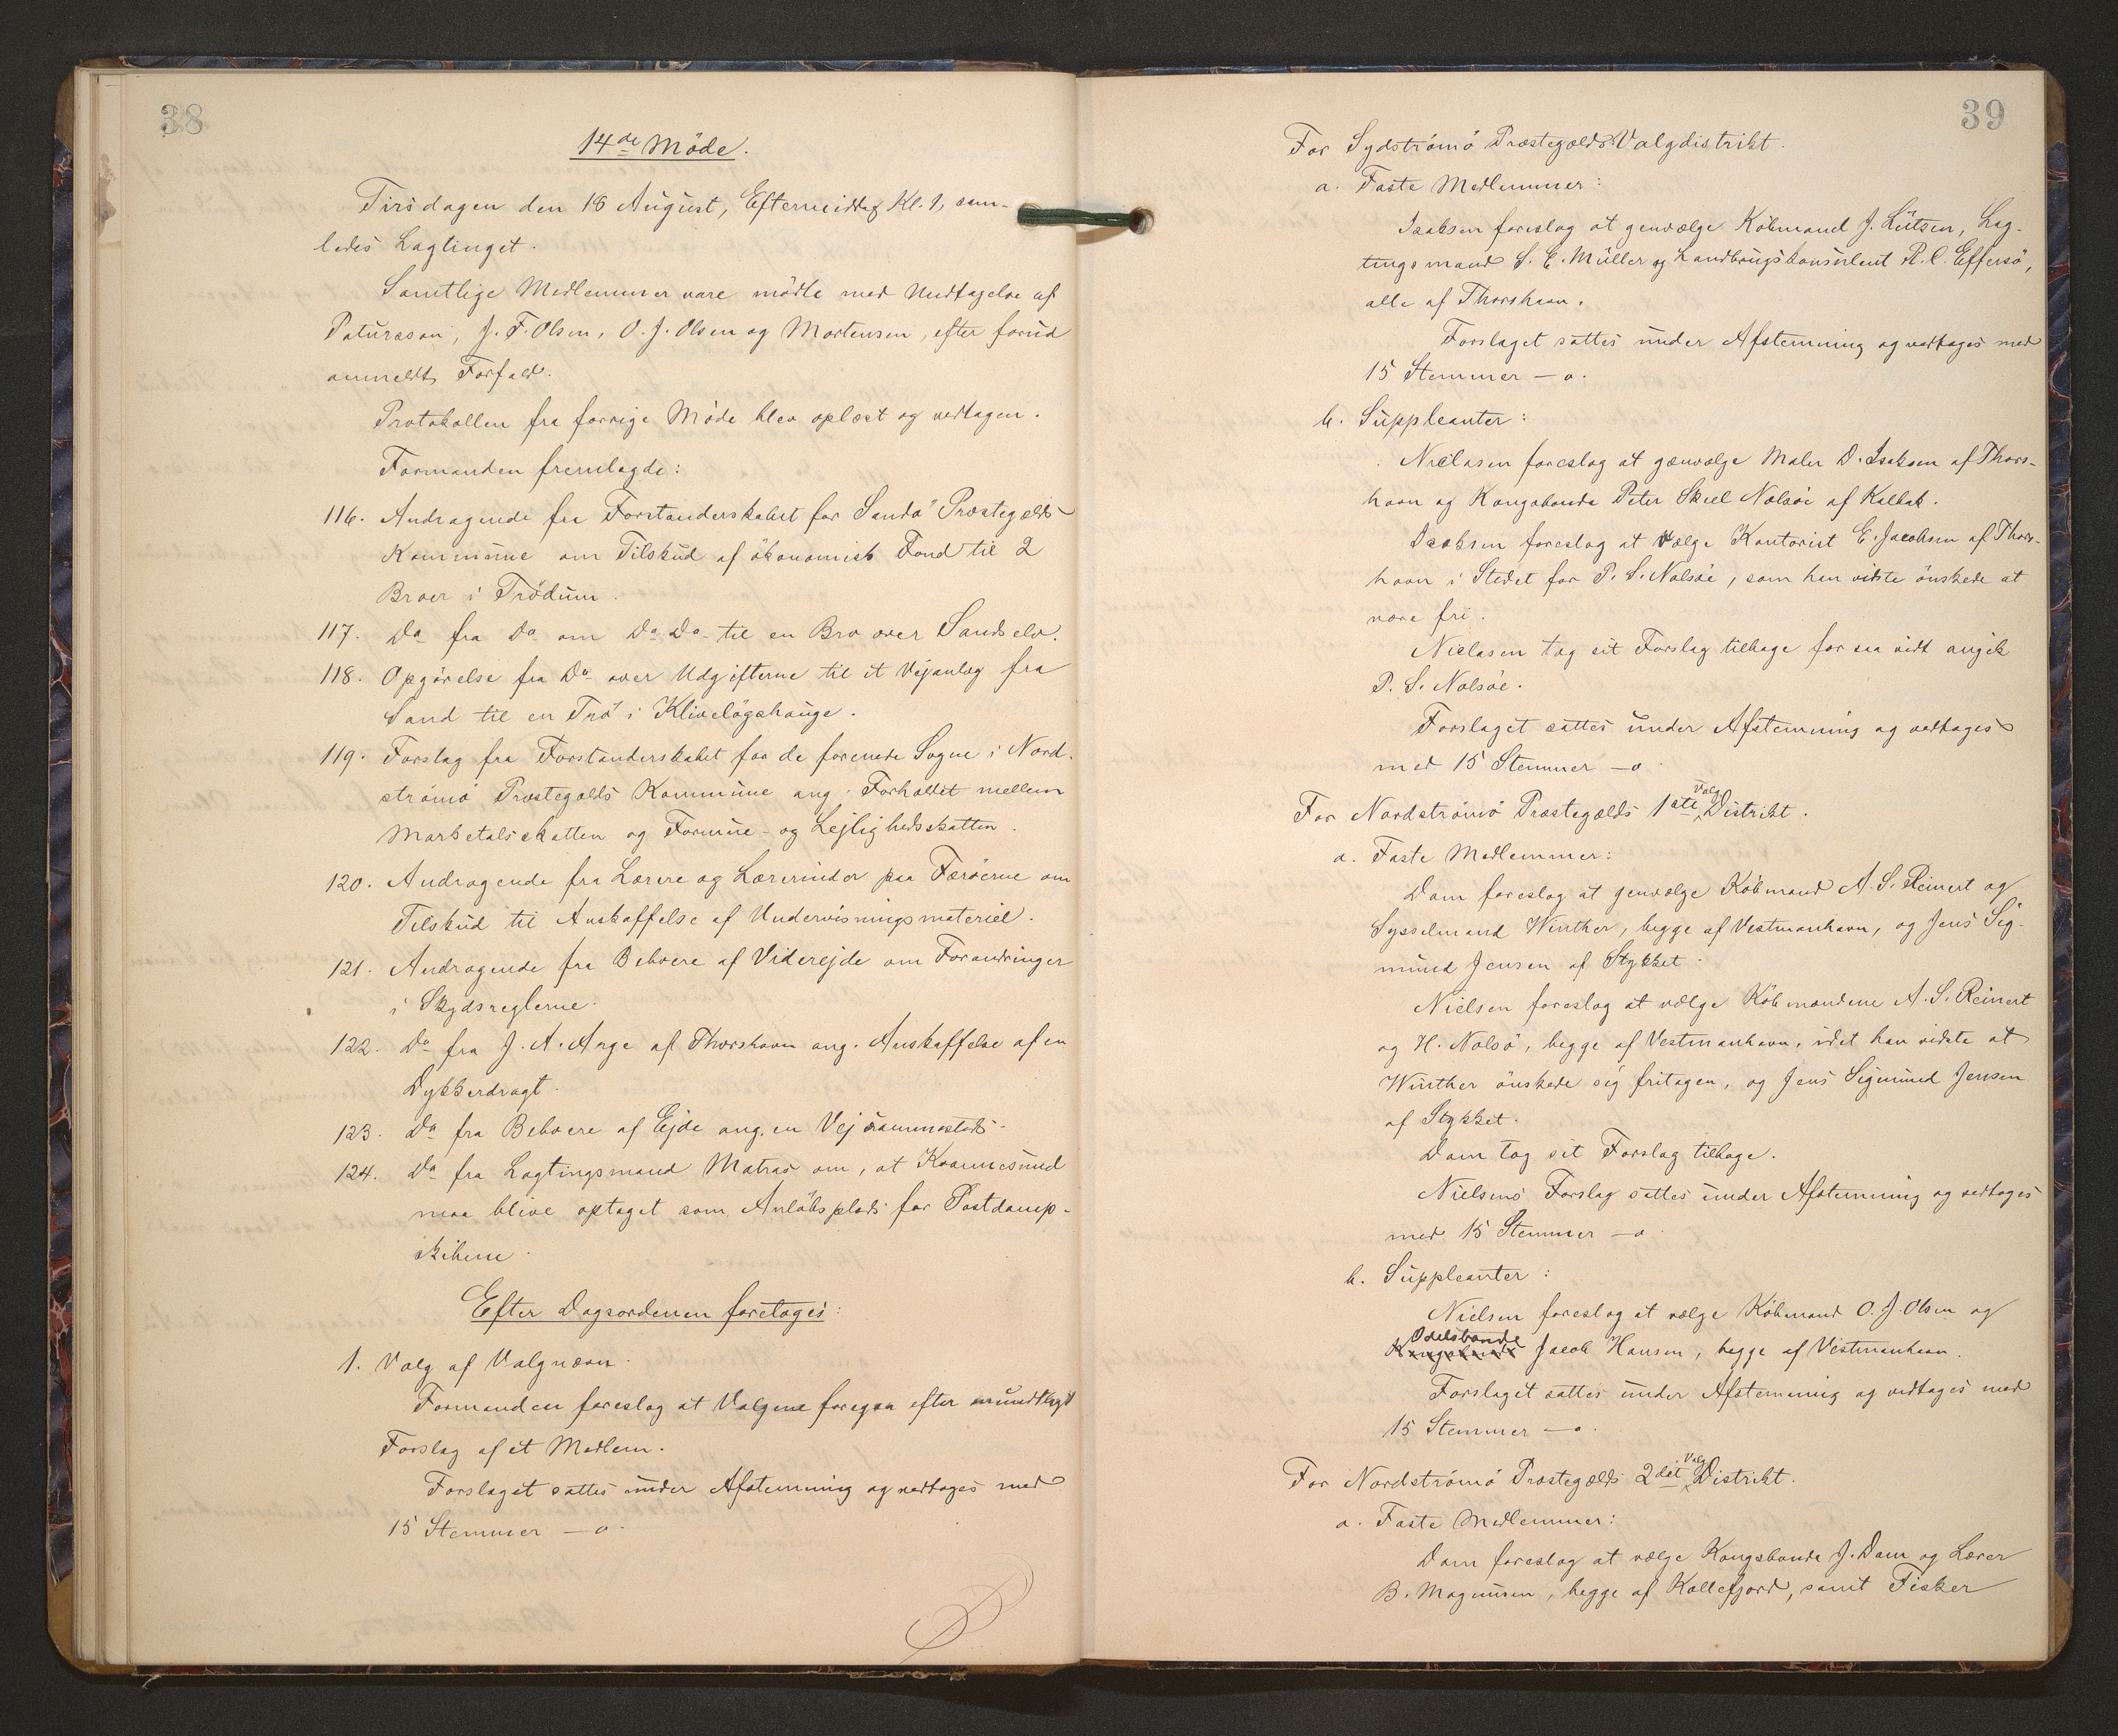 38
14de Möde.
Tirsdagen den 18 August, Eftermiddag Kl. 1, sam-
ledes Lagtinget.
Samtlige Medlemmer vare mödte med Undtagelse af
Patursson, J. F. Olsen, O. J. Olsen og Mortensen, efter forud
anmeldt Forfald.
Protokollen fra forrige Möde blev oplæst og vedtagen.
Formanden fremlagde:
116. Andragende fra Forstanderskabet for Sandö Præstegælds
Kommune om Tilskud af ökonomisk Fond til 2
Broer i Trödum.
117. Do fra Do om Do Do til en Bro over Sandselv.
118. Opgörelse fra Do over Udgifterne til et Vejanlæg fra
Sand til en Trö i Klivelögshauge.
119. Forslag fra Forstanderskabet for de forenede Sogne i Nord-
strömö Præstegælds Kommune ang. Forholdet mellem
Marketalsskatten og Formue- og Lejlighedsskatten.
120. Andragende fra Lærere og Lærerinder paa Færöerne om
Tilskud til Anskaffelse af Undervisningsmateriel.
121. Andragende fra Beboere af Viderejde om Forandringer
i Skydsreglerne.
122. Do fra J. A. Arge af Thorshavn ang. Anskaffelse af en
Dykkerdragt.
123. Do fra Beboere af Ejde ang. en Vej sammesteds.
124. Do fra Lagtingsmand Matras om, at Kvannesund
maa blive optaget som Anlöbsplads for Postdamp-
skibene.
Efter Dagsordenen foretoges:
1. Valg af Valgnævn.
Formanden foreslog at Valgene foregaa efter mundtligt
Forslag af et Medlem.
Forslaget sattes under Afstemning og vedtoges med
15 Stemmer — o.
39
For Sydströmö Præstegælds Valgdistrikt.
a. Faste Medlemmer:
Isaksen foreslog at genvælge Köbmand J. Lützen, Lag-
tingsmand S. E. Müller og Landbrugskonsulent R. C. Effersö,
alle af Thorshavn.
Forslaget sattes under Afstemning og vedtoges med
15 Stemmer — o.
b. Suppleanter:
Nielsen foreslog at genvælge Maler D. Isaksen af Thors-
havn og Kongsbonde Peter Skeel Nolsöe af Kalbak.
Isaksen foreslog at vælge Kontorist E. Jacobsen af Thors-
havn i Stedet for P. S. Nolsöe, som han vidste önskede at
være fri.
Nielsen tog sit Forslag tilbage for saa vidt angik
P. S. Nolsöe.
Forslaget sattes under Afstemning og vedtoges
med 15 Stemmer — o
For Nordströmö Præstegælds 1ste Valg Distrikt.
a. Faste Medlemmer:
Dam foreslog at genvælge Köbmand A. S. Reinert og
Sysselmand Winther, begge af Vestmanhavn, og Jens Sig-
mund Jensen af Stykket.
Nielsen foreslog at vælge Köbmændene A. S. Reinert
og H. Nolsö, begge af Vestmanhavn, idet han vidste at
Winther önskede sig fritagen, og Jens Sigmund Jensen
af Stykket.
Dam tog sit Forslag tilbage.
Nielsens Forslag sattes under Afstemning og vedtoges
med 15 Stemmer — o
b. Suppleanter:
Nielsen foreslog at vælge Köbmand O. J. Olsen og
Odelsbonde
Kongsbonde Jacob Hansen, begge af Vestmanhavn.
Forslaget sattes under Afstemning og vedtoges med
15 Stemmer — o.
For Nordströmö Præstegælds 2det Valg Distrikt.
a. Faste Medlemmer:
Dam foreslog at vælge Kongsbonde J. Dam og Lærer
B. Magnusen, begge af Kollefjord, samt Fisker